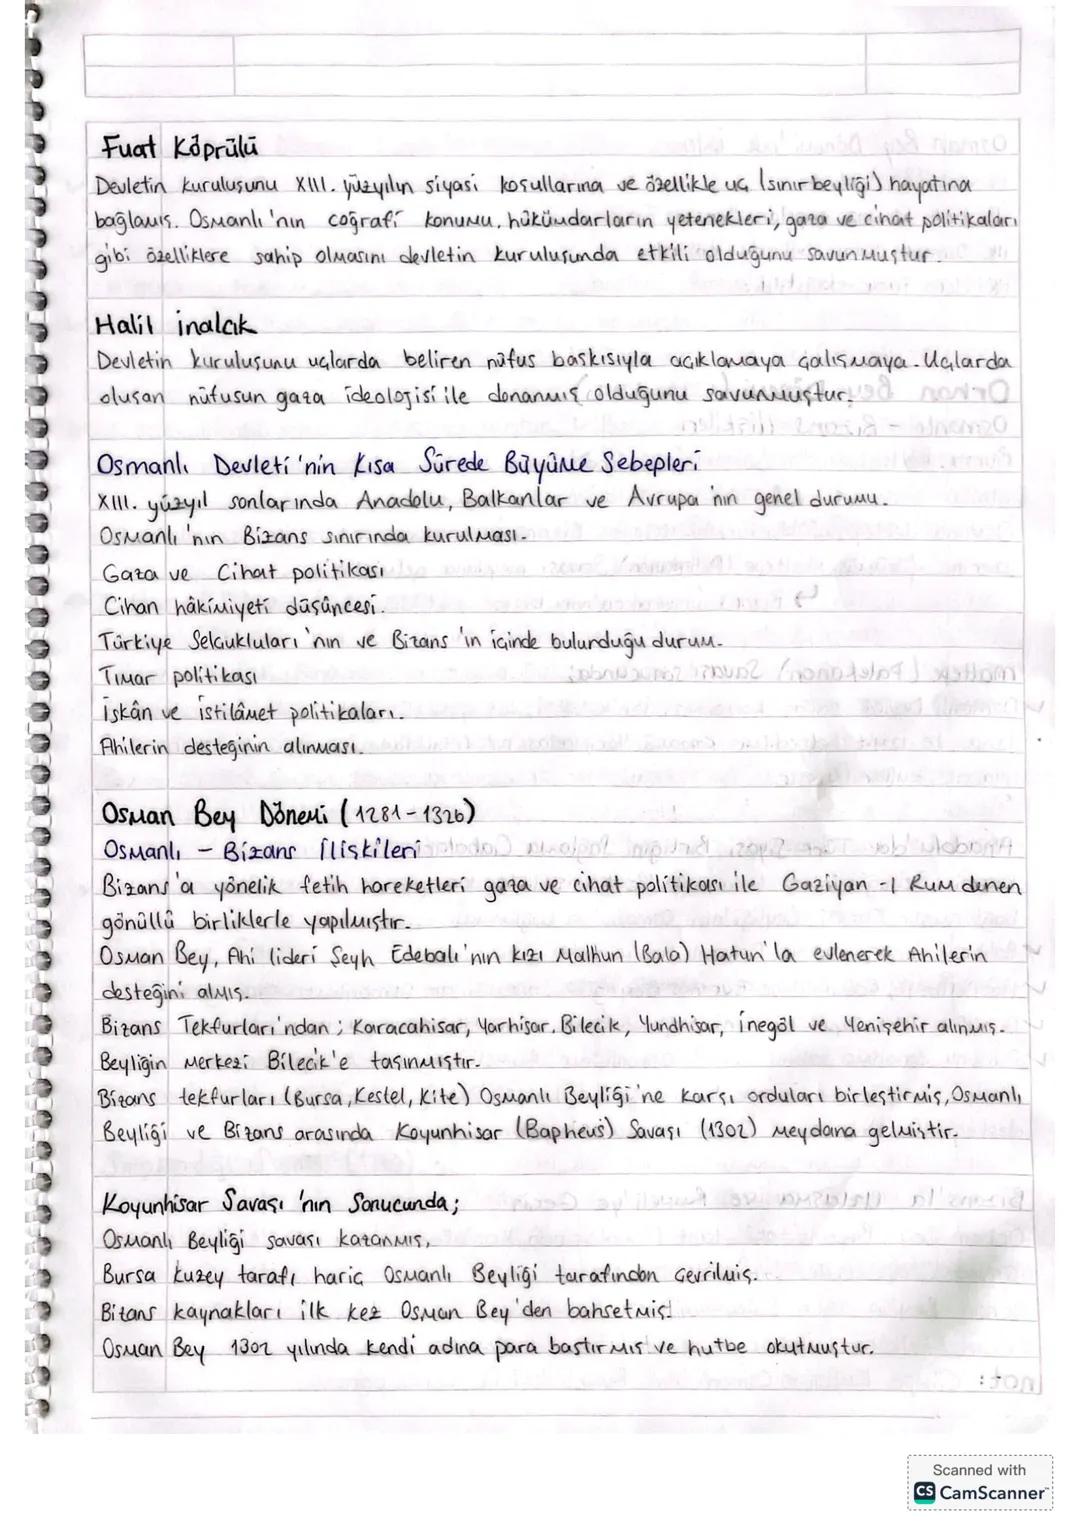 Fuat Köprülü
Devletin kuruluşunu XIII. yüzyılın siyasi koşullarına ve özellikle uç (sınır beyliği) hayatına
bağlamış. Osmanlı'nın coğrafi konumu, hükümdarların yetenekleri, gaza ve cihat politikaları
gibi özelliklere sahip olmasını devletin kuruluşunda etkili olduğunu savunmuştur.
Halil İnalcık
Devletin kuruluşunu uçlarda beliren nüfus baskısıyla açıklamaya çalışmaya. Uçlarda
oluşan nüfusun gaza ideolojisi ile donanmış olduğunu savunmuştur.
Osmanlı Devleti'nin Kısa Sürede Büyüme Sebepleri
XIII. yüzyıl sonlarında Anadolu, Balkanlar ve Avrupa'nın genel durumu.
Osmanlı'nın Bizans sınırında kurulması.
Gaza ve Cihat politikası
Cihan hâkimiyeti düşüncesi.
Türkiye Selçukluları'nın ve Bizans'ın içinde bulunduğu durum.
Tımar politikası
İskân ve istilâmet politikaları.
Ahilerin desteğinin alınması.
Osman Bey Dönemi (1281-1326)
Osmanlı - Bizans İlişkileri
Bizans'a yönelik fetih hareketleri gaza ve cihat politikası ile Gaziyan-ı Rum denen
gönüllü birliklerle yapılmıştır.
Osman Bey, Ahi lideri Şeyh Edebalı'nın kızı Malhun (Bala) Hatun'la evlenerek Ahilerin
desteğini almış.
Bizans Tekfurları'ndan; Karacahisar, Yarhisar, Bilecik, Yundhisar, İnegöl ve Yenişehir alınmış.
Beyliğin merkezi Bilecik'e taşınmıştır.
Bizans tekfurları (Bursa, Kestel, Kite) Osmanlı Beyliği'ne karşı orduları birleştirmiş, Osmanlı
Beyliği ve Bizans arasında Koyunhisar (Bapheus) Savaşı (1302) meydana gelmiştir.
Koyunhisar Savaşı'nın Sonucunda;
Osmanlı Beyliği savaşı kazanmış,
Bursa kuzey tarafı hariç Osmanlı Beyliği tarafından çevrilmiş.
Bizans kaynakları ilk kez Osman Bey'den bahsetmiş!
Osman Bey 1302 yılında kendi adına para bastırmış ve hutbe okutmuştur.
Scanned with
CS CamScanner